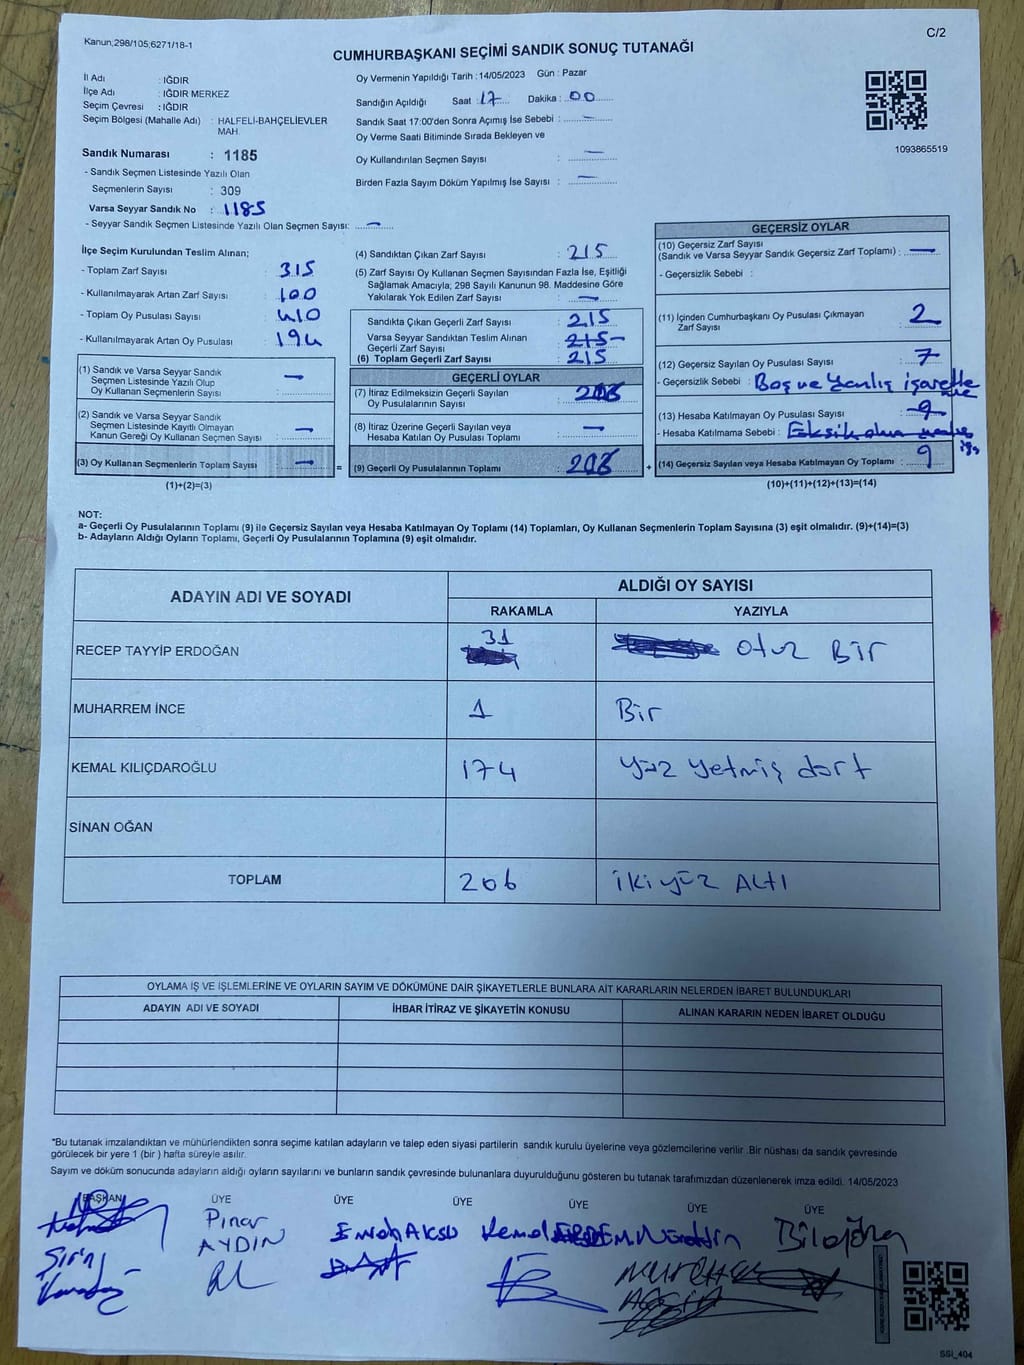 Kanun;298/105;6271/18-1
C/2
CUMHURBAŞKANI SEÇİMİ SANDIK SONUÇ TUTANAĞI
İl Adı : IĞDIR
İlçe Adı : IĞDIR MERKEZ
Seçim Çevresi : IĞDIR
Seçim Bölgesi (Mahalle Adı) : HALFELİ-BAHÇELİEVLER
MAH.
Sandık Numarası : 1185
- Sandık Seçmen Listesinde Yazılı Olan
Seçmenlerin Sayısı : 309
Varsa Seyyar Sandık No : 1185
- Seyyar Sandık Seçmen Listesinde Yazılı Olan Seçmen Sayısı: —
Oy Vermenin Yapıldığı Tarih : 14/05/2023 Gün : Pazar
Sandığın Açıldığı Saat : 17 Dakika : 00
Sandık Saat 17:00'den Sonra Açımış İse Sebebi : —
Oy Verme Saati Bitiminde Sırada Bekleyen ve
Oy Kullandırılan Seçmen Sayısı : —
Birden Fazla Sayım Döküm Yapılmış İse Sayısı : —
1093865519
İlçe Seçim Kurulundan Teslim Alınan;
- Toplam Zarf Sayısı : 315
- Kullanılmayarak Artan Zarf Sayısı : 100
- Toplam Oy Pusulası Sayısı : 410
- Kullanılmayarak Artan Oy Pusulası : 194
(1) Sandık ve Varsa Seyyar Sandık
Seçmen Listesinde Yazılı Olup
Oy Kullanan Seçmenlerin Sayısı : —
(2) Sandık ve Varsa Seyyar Sandık
Seçmen Listesinde Kayıtlı Olmayan
Kanun Gereği Oy Kullanan Seçmen Sayısı : —
(3) Oy Kullanan Seçmenlerin Toplam Sayısı : —
(1)+(2)=(3)
(4) Sandıktan Çıkan Zarf Sayısı : 215
(5) Zarf Sayısı Oy Kullanan Seçmen Sayısından Fazla İse, Eşitliği
Sağlamak Amacıyla; 298 Sayılı Kanunun 98. Maddesine Göre
Yakılarak Yok Edilen Zarf Sayısı : —
Sandıkta Çıkan Geçerli Zarf Sayısı : 215
Varsa Seyyar Sandıktan Teslim Alınan
Geçerli Zarf Sayısı : 215
(6) Toplam Geçerli Zarf Sayısı : 215
GEÇERLİ OYLAR
(7) İtiraz Edilmeksizin Geçerli Sayılan
Oy Pusulalarının Sayısı : 206
(8) İtiraz Üzerine Geçerli Sayılan veya
Hesaba Katılan Oy Pusulası Toplamı : —
= (9) Geçerli Oy Pusulalarının Toplamı : 206
GEÇERSİZ OYLAR
(10) Geçersiz Zarf Sayısı
(Sandık ve Varsa Seyyar Sandık Geçersiz Zarf Toplamı) : —
- Geçersizlik Sebebi :
(11) İçinden Cumhurbaşkanı Oy Pusulası Çıkmayan
Zarf Sayısı : 2
(12) Geçersiz Sayılan Oy Pusulası Sayısı : 7
- Geçersizlik Sebebi : Boş ve Yanlış işaretle
(13) Hesaba Katılmayan Oy Pusulası Sayısı : 9
- Hesaba Katılmama Sebebi : Eksik olan
+ (14) Geçersiz Sayılan veya Hesaba Katılmayan Oy Toplamı : 9
(10)+(11)+(12)+(13)=(14)
NOT:
a- Geçerli Oy Pusulalarının Toplamı (9) ile Geçersiz Sayılan veya Hesaba Katılmayan Oy Toplamı (14) Toplamları, Oy Kullanan Seçmenlerin Toplam Sayısına (3) eşit olmalıdır. (9)+(14)=(3)
b- Adayların Aldığı Oyların Toplamı, Geçerli Oy Pusulalarının Toplamına (9) eşit olmalıdır.
ADAYIN ADI VE SOYADI
ALDIĞI OY SAYISI
RAKAMLA YAZIYLA
RECEP TAYYİP ERDOĞAN 31 otuz Bir
MUHARREM İNCE 1 Bir
KEMAL KILIÇDAROĞLU 174 Yüz yetmiş dört
SİNAN OĞAN
TOPLAM 206 iki yüz ALTI
OYLAMA İŞ VE İŞLEMLERİNE VE OYLARIN SAYIM VE DÖKÜMÜNE DAİR ŞİKAYETLERLE BUNLARA AİT KARARLARIN NELERDEN İBARET BULUNDUKLARI
ADAYIN ADI VE SOYADI İHBAR İTİRAZ VE ŞİKAYETİN KONUSU ALINAN KARARIN NEDEN İBARET OLDUĞU
*Bu tutanak imzalandıktan ve mühürlendikten sonra seçime katılan adayların ve talep eden siyasi partilerin sandık kurulu üyelerine veya gözlemcilerine verilir .Bir nüshası da sandık çevresinde
görülecek bir yere 1 (bir ) hafta süreyle asılır.
Sayım ve döküm sonucunda adayların aldığı oyların sayılarını ve bunların sandık çevresinde bulunanlara duyurulduğunu gösteren bu tutanak tarafımızdan düzenlenerek imza edildi. 14/05/2023
BAŞKAN ÜYE ÜYE ÜYE ÜYE ÜYE ÜYE
Pınar Emrah AKSU Kemal ERDEM Nurettin
AYDIN
Şirin
SSİ_404